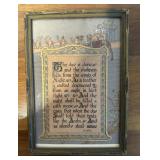 The day is done and
and the darkness
falls from the wings of
Night as a feather
is wafted downward
from an eagle in
flight And the
night shall be filled
with music And
the cares that infest
the day Shall
fold their tents
like the Arabs And
as silently steal away